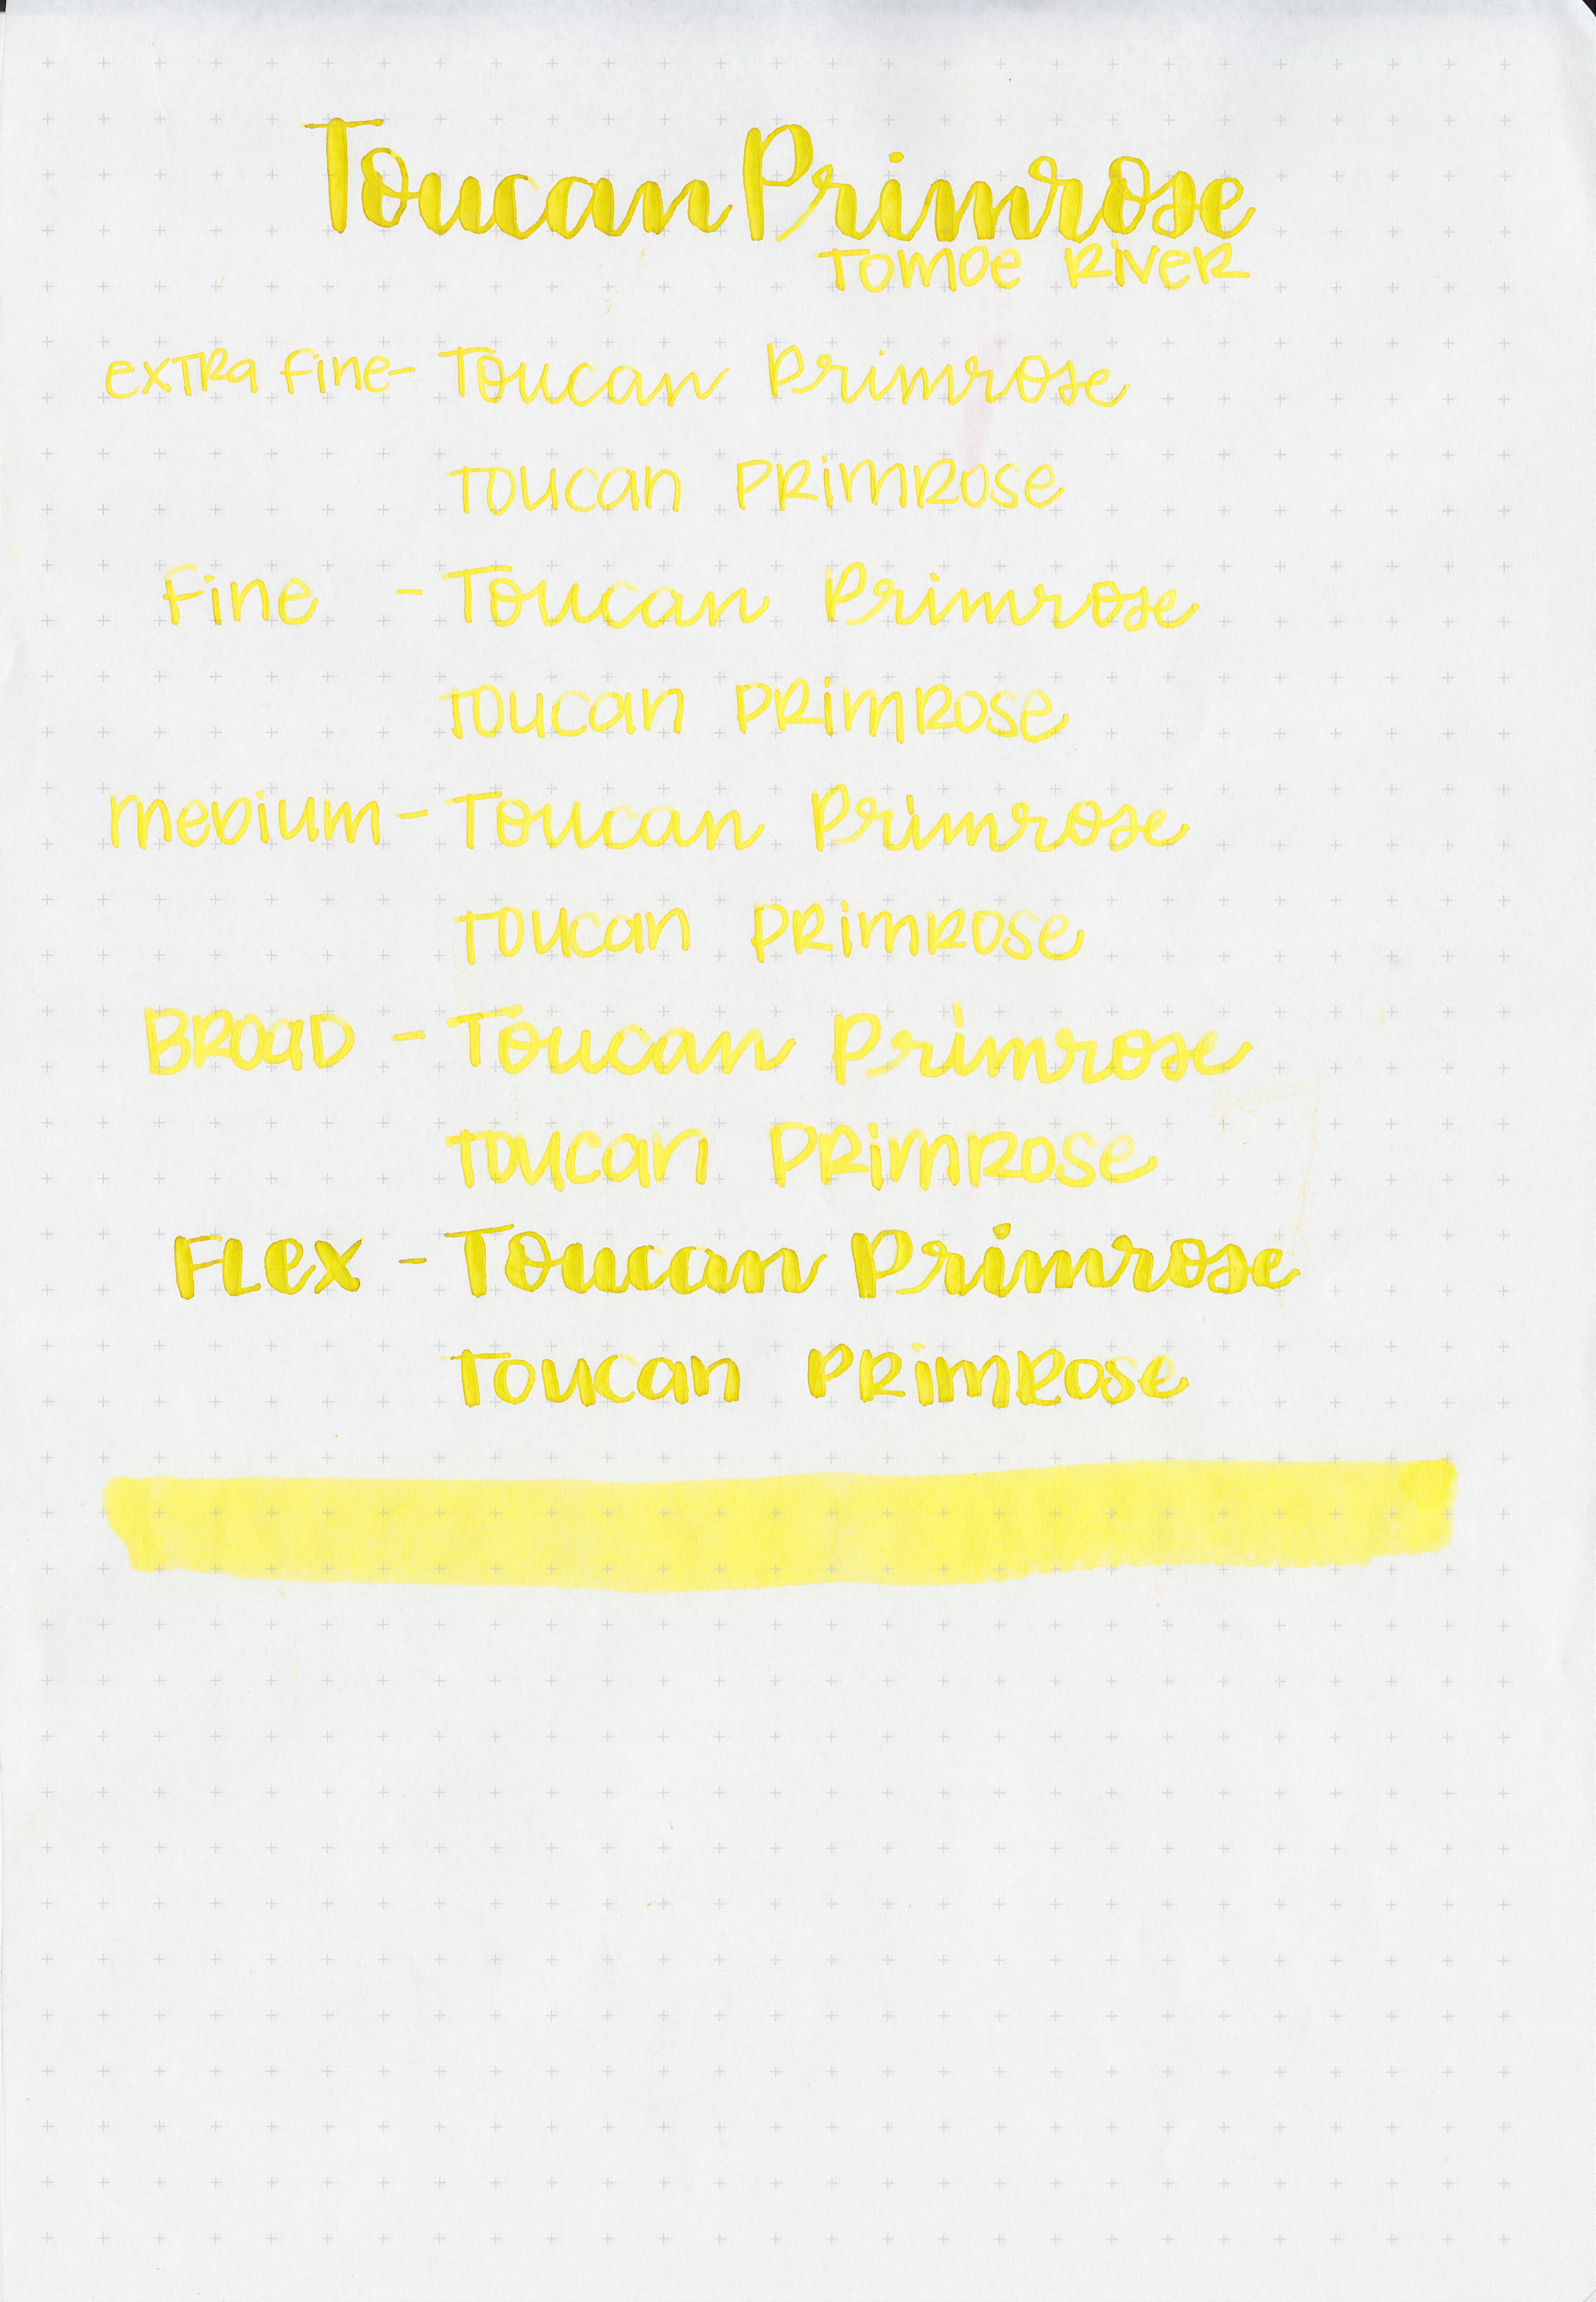 Toucan Primrose
Tomoe River
extra fine- Toucan Primrose
Toucan Primrose
Fine - Toucan Primrose
Toucan Primrose
medium - Toucan Primrose
Toucan Primrose
Broad - Toucan Primrose
Toucan Primrose
Flex - Toucan Primrose
Toucan Primrose